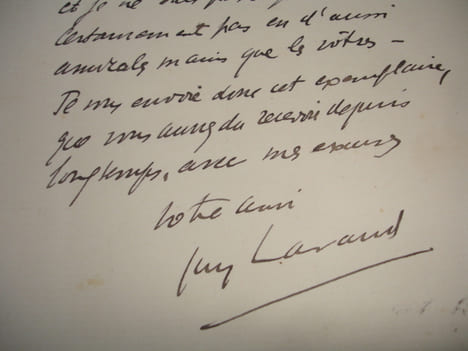 et je ne
certainement pas en d'aussi
amicales mains que les vôtres –
Je vous envoie donc cet exemplaire,
que vous auriez dû recevoir depuis
longtemps, avec mes excuses
Votre ami
Guy Lavaud